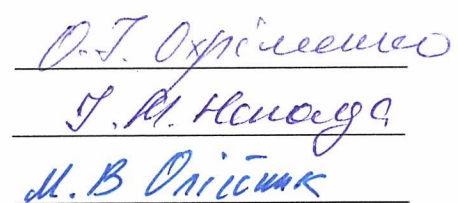 О.Г. Охріменко
І.М. Ненада
М.В Олійник